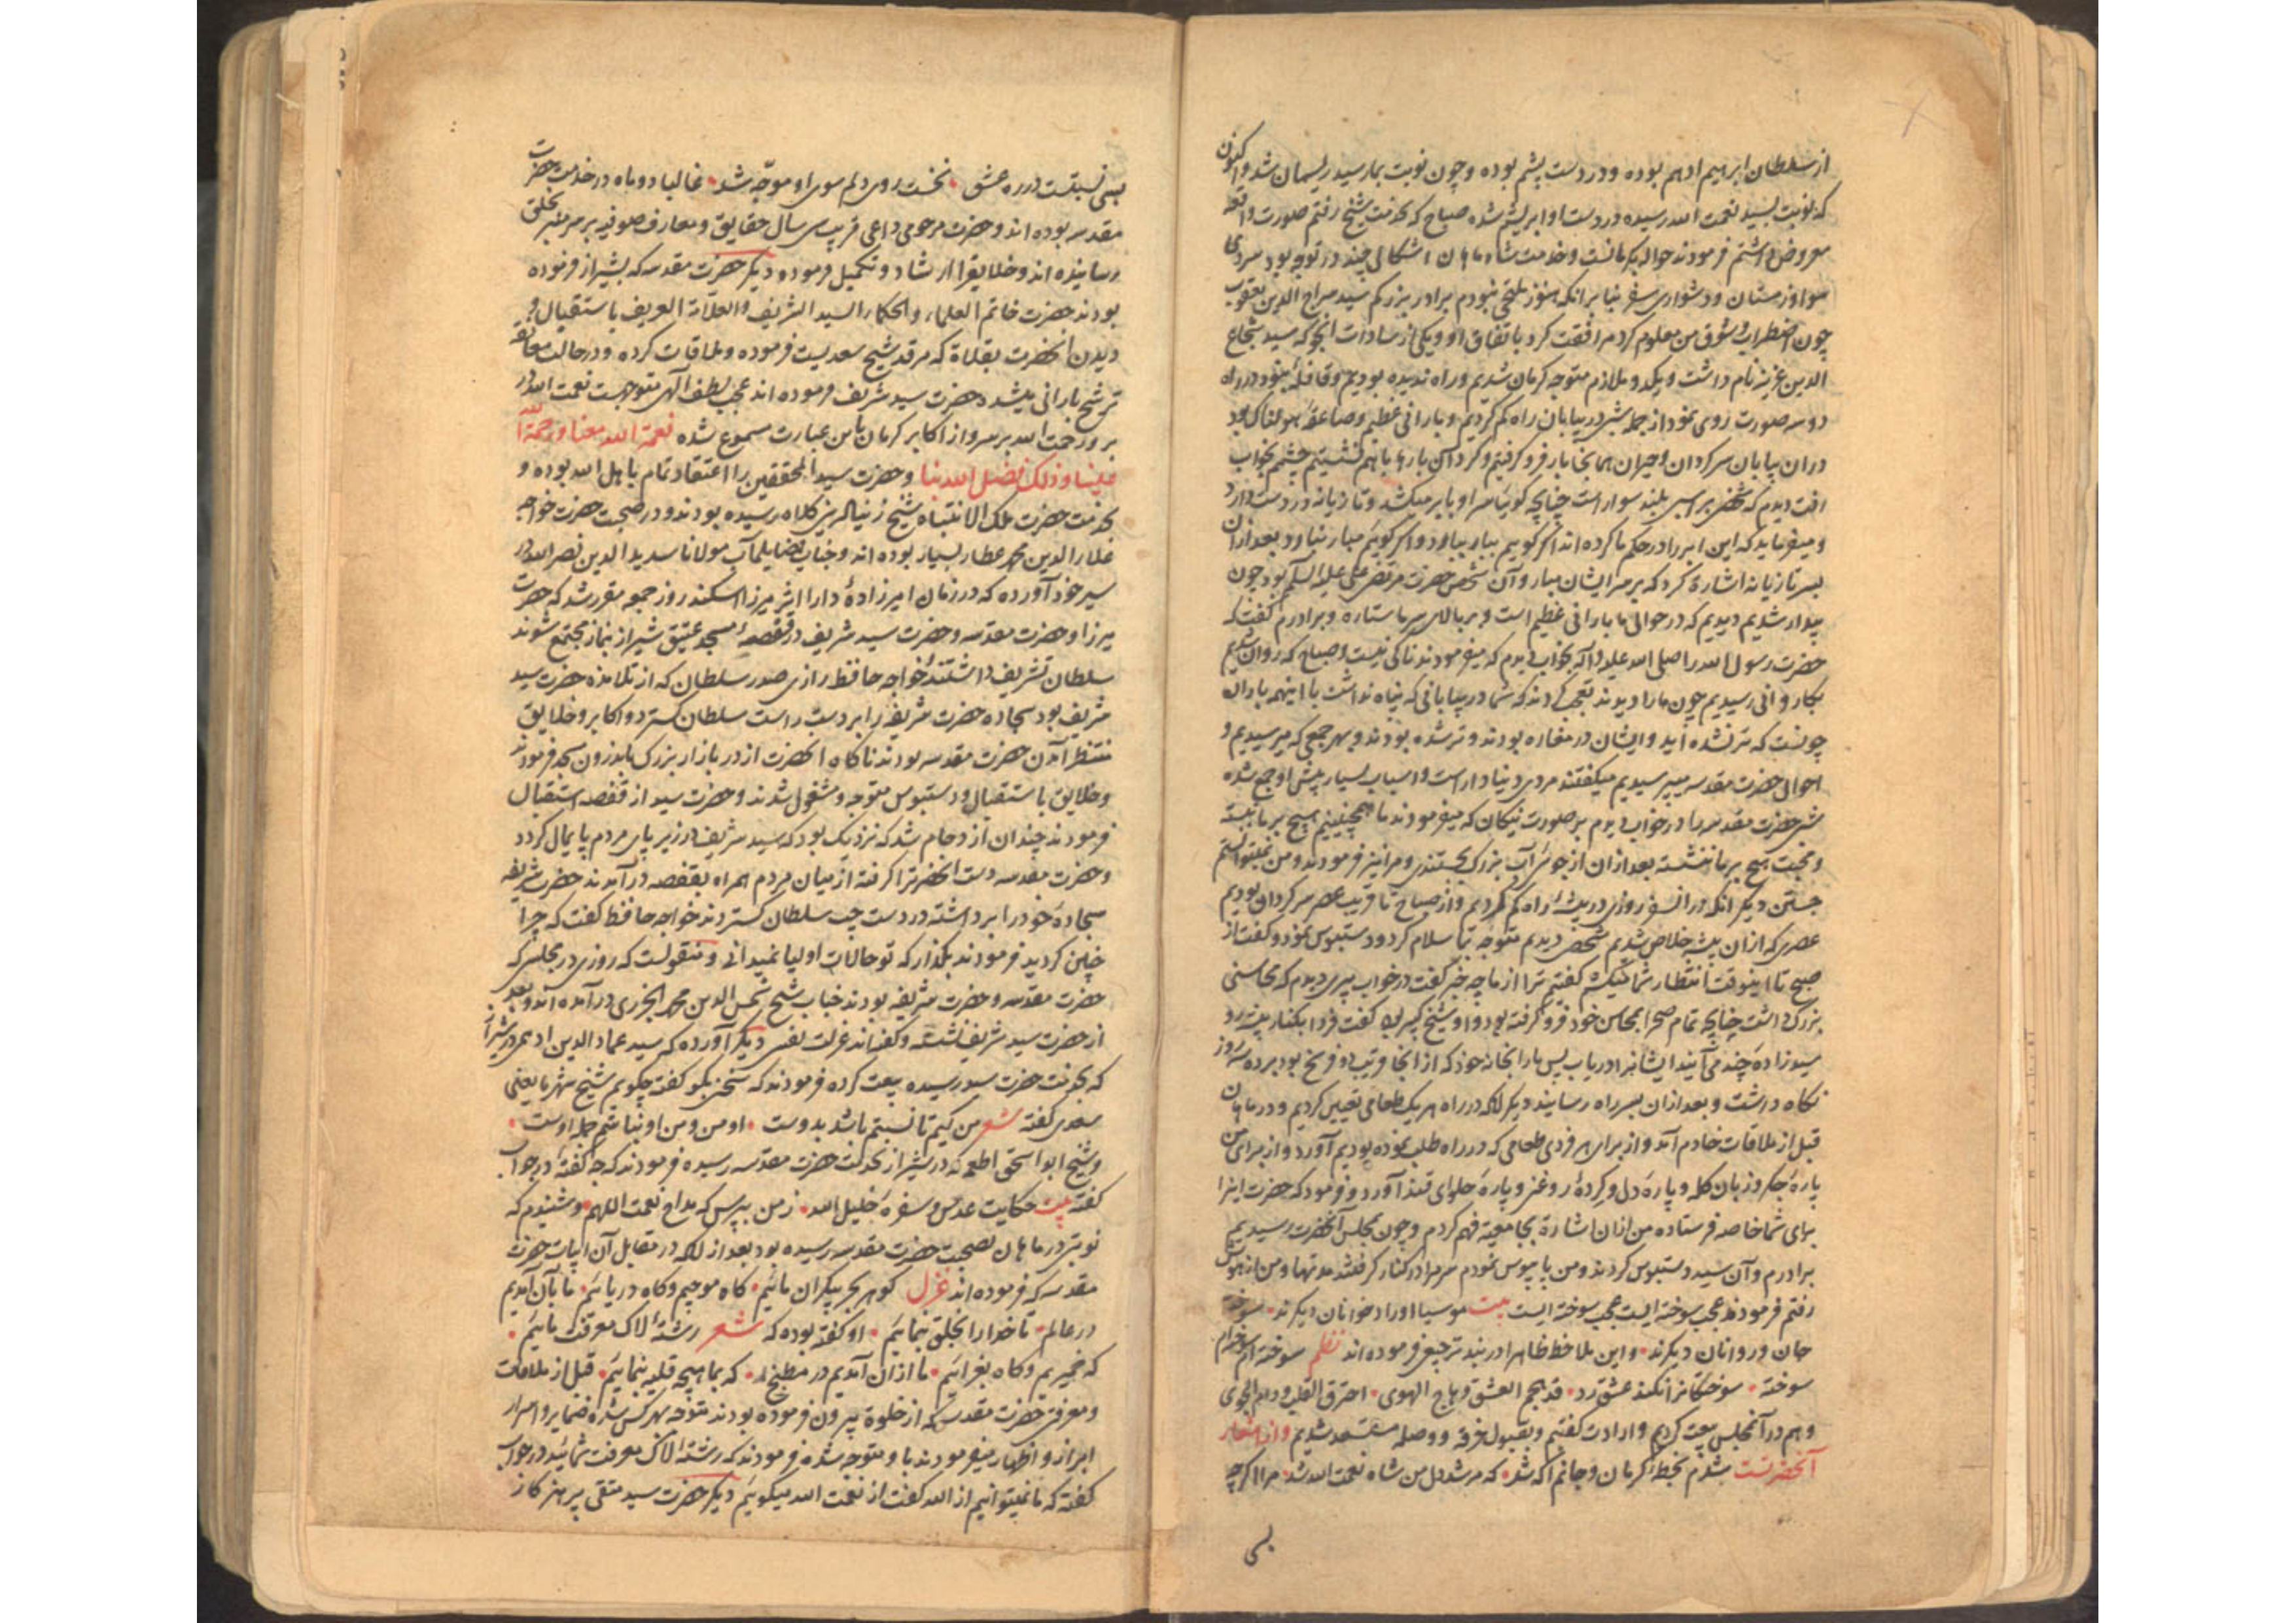 از سلطان ابراهیم ادهم بوده و در دست پشم بوده و چون نوبت بما رسید ریسمان شد و اکنون
که نوبت بسید نعمت الله رسیده در دست او ابریشم شده صباح که بخدمت شیخ رفتم صورت واقعه
معروض داشتم فرمودند حواله بکرمانست و خدمت شاه ماهان اشکالی چند در توجه بود سردی
هوا و زمستان و دشواری سفر بنا بر انکه هنوز ملتحی نبودم برادر بزرگم سید سراج الدین یعقوب
چون اضطراب و شوق من معلوم کرد مرافقت کرد باتفاق او و یکی از سادات انجو که سید شجاع
الدین عزیز نام داشت و یکدو ملازم متوجه کرمان شدیم و راه ندیده بودیم و قافله نبود در راه
دو سه صورت روی نمود از جمله شبی در بیابان راه گم کردیم و بارانی عظیم و صاعقه هولناک بود
دران بیابان سرکردان و حیران همانجا بار فرو گرفتیم و گرد آن بارها باهم نشستیم چشمم بخواب
رفت دیدم که شخصی بر اسبی بلند سوار است چنانچه گوئیا سر او بابر میکشد و تازیانه در دست دارد
و میفرماید که این ابر را در حکم ما کرده اند اگر گوییم ببار ببارد و اگر گوییم مبار نبارد بعد ازان
بسر تازیانه اشارة کرد که بر سر ایشان مبار و آن شخص حضرت مرتضی علی علیه السلم بود چون
بیدار شدیم دیدیم که در حوالی ما بارانی عظیم است و بر بالای سر ما ستاره و برادرم گفت که
حضرت رسول الله را صلی الله علیه و آله بخواب دیدم که میفرمودند باکی نیست و صباح که روان شدیم
بکاروانی رسیدیم چون ما را دیدند تعجب کردند که شما در بیابانی که پناه نداشت با اینهمه باران
چونست که تر نشده اید و ایشان در مغاره بودند و تر شده بودند و بهر جمعی که میرسیدیم و
احوال حضرت مقدسه میپرسیدیم میگفتند مردی دنیا دار است و اسباب بسیار پیش او جمع شده
شبی حضرت مقدسه را در خواب دیدم بر صورت نیکان که میفرمودند ما همچنینیم هیچ بر ما نبسته
و محبت هیچ بر ما ننشسته بعد ازان از جوی آب بزرگ بجستند و مرا نیز فرمودند و من نمیتوانستم
جستن دیگر انکه دران سفر روزی در بیشه راه گم کردیم و از صباح تا قریب عصر سرکردان بودیم
عصری که ازان بیشه خلاص شدیم شخصی دیدیم متوجه ما سلام کرد و دستبوس نمود و گفت از
صبح تا اینوقت انتظار شما میکشم گفتم ترا از ما چه خبر گفت در خواب پیری دیدم که محاسنی
بزرگ داشت چنانچه تمام صحرا بمحاسن خود فرو گرفته بود و او شیخ کبیر بود گفت فردا بکنار بیشه رو
سید زادهٔ چند می آیند ایشانرا دریاب پس ما را بخانه خود که از انجا قریب دو فرسخ بود برد سه روز
نگاه داشت و بعد ازان بسر راه رسانید دیگر انکه در راه هر یک طعامی تعیین کردیم و در ماهان
قبل از ملاقات خادم آمد و از برای هر فردی طعامی که در راه طلب نموده بودیم آورد و از برای من
پارهٔ جگر و زبان کله و پارهٔ دل و گردهٔ روغنی و پارهٔ حلوای قند آورد و فرمود که حضرت اینرا
برای شما خاصه فرستاده من ازان اشارة بجامعیة فهم کردم و چون بمجلس آنحضرت رسیدیم
برادرم و آن سید دستبوس کردند و من پایبوس نمودم سر مرا در کنار گرفتند مدتها و من از هوش
رفتم فرمودند عجب سوخته ایست عجب سوخته ایست بیت موسیا اوراد خوانان دیگرند • سوخته
جان و روانان دیگرند • و این ملاحظ ظاهرا در بند ترجیع فرموده اند نظم سوخته ام سوخته ام
سوخته • سوختگانرا نکند عشق رد • قد هجم العشق و هاج الهوی • احترق القلب و دام الجوی
و هم در آنمجلس بیعت کردیم و ارادت گفتیم و بقبول خرقه و وصله مستسعد شدیم و از اشعار
آنحضرتست شدم بخطهٔ کرمان و جانم آگه شد • که مرشد دل من شاه نعمت الله شد • مرا اگرچه
بسی
بسی نسبتست در ره عشق • نخست روی دلم سوی او موجّه شد • غالبا دو ماه در خدمت حضرت
مقدسه بوده اند و حضرت مرحومی داعی قریب سی سال حقایق و معارف صوفیه بر سر منبر بخلق
رسانیده اند و خلایقرا ارشاد و تکمیل فرموده دیگر حضرت مقدسه که بشیراز فرموده
بودند حضرت خاتم العلماء و الحکماء السید الشریف و العلامة العریف باستقبال و
دیدن آنحضرت بقلاة که مرقد شیخ سعدیست فرموده و ملاقات کرده و در حالت معانقه
ترشح بارانی میشد حضرت سید شریف فرموده اند عجب لطف الهی متوجهست نعمت الله در
بر و رحمت الله بر سر و از اکابر کرمان باین عبارت مسموع شده نعمة الله معنا و رحمة الله
علینا و ذلک فضل الله بنا و حضرت سید المحققین را اعتقاد تمام باهل الله بوده و
بخدمت حضرت ملک الانتباه شیخ زینا له بزی کلاه رسیده بودند و در صحبت حضرت خواجه
علاء الدین محمد عطار بسیار بوده اند و جناب فضایلمآب مولانا سدید الدین نصر الله در
سیر خود آورده که در زمان امیرزادهٔ دارا اثر میرزا اسکندر روز جمعه مقرر شد که حضرت
میرزا و حضرت مقدسه و حضرت سید شریف در قفصهٔ مسجد عتیق شیراز بنماز مجتمع شوند
سلطان تشریف داشتند خواجه حافظ رازی صدر سلطان که از تلامذه حضرت سید
شریف بود سجاده حضرت شریفه را بر دست راست سلطان گسترد و اکابر و خلایق
منتظر آمدن حضرت مقدسه بودند ناگاه آنحضرت از در بازار بزرگ باندرون مسجد فرمودند
و خلایق باستقبال و دستبوس متوجه و مشغول شدند و حضرت سید از قفصه استقبال
فرمودند چندان ازدحام شد که نزدیک بود که سید شریف در زیر پای مردم پایمال گردد
و حضرت مقدسه دست آنحضرترا گرفته از میان مردم همراه بقفصه درآمدند حضرت شریفه
سجادهٔ خود را برداشته در دست چپ سلطان گستردند خواجه حافظ گفت که چرا
چنین کردید فرمودند بگذار که تو حالات اولیا نمیدانی و منقولست که روزی در مجلس که
حضرت مقدسه و حضرت شریفه بودند جناب شیخ شمس الدین محمد الجزری درآمده اند و بعد
از حضرت سید شریف نشسته و گفته اند عزلت نفس دیگر آورده که سید عماد الدین ادهمی در شیراز
که بخدمت حضرت سید رسیده بیعت کرده فرمودند که سخنی بگو گفته چگویم شیخ شهر ما یعنی
سعدی گفته شعر من کیم تا نسبتم باشد بدوست • او من و من او نباشم جمله اوست •
و شیخ ابو اسحق اطعمه که در شیراز بخدمت حضرت مقدسه رسیده فرمودند که چه گفتهٔ در جواب
گفته بیت حکایت عدس و سفرهٔ خلیل الله • ز من بپرس که مداح نعمت اللهم • و شنیدم که
نوبتی در ماهان بصحبت حضرت مقدسه رسیده بود بعد از انکه در مقابل آن ابیات حضرت
مقدسه که فرموده اند غزل گوهر بحر بیکران مائیم • گاه موجیم و گاه دریائیم • ما بآن آمدیم
در عالم • تا خدا را بخلق بنمائیم • او گفته بوده که شعر رشتهٔ لاک معرفت مائیم •
که خمیریم و گاه بغرائیم • ما ازان آمدیم در مطبخ • که بماهیچه قلیه بنمائیم • قبل از ملاقات
و معرفت حضرت مقدسه که از خلوة بیرون فرموده بودند متوجه هر کس شده ضمایر و اسرار
ابراز و اظهار میفرمودند باو متوجه شده فرمودند که رشتهٔ لاک معرفت شمائید در جواب
گفته که ما نمیتوانیم از الله گفت از نعمت الله میگوئیم دیگر حضرت سید متقی پرهیزکار